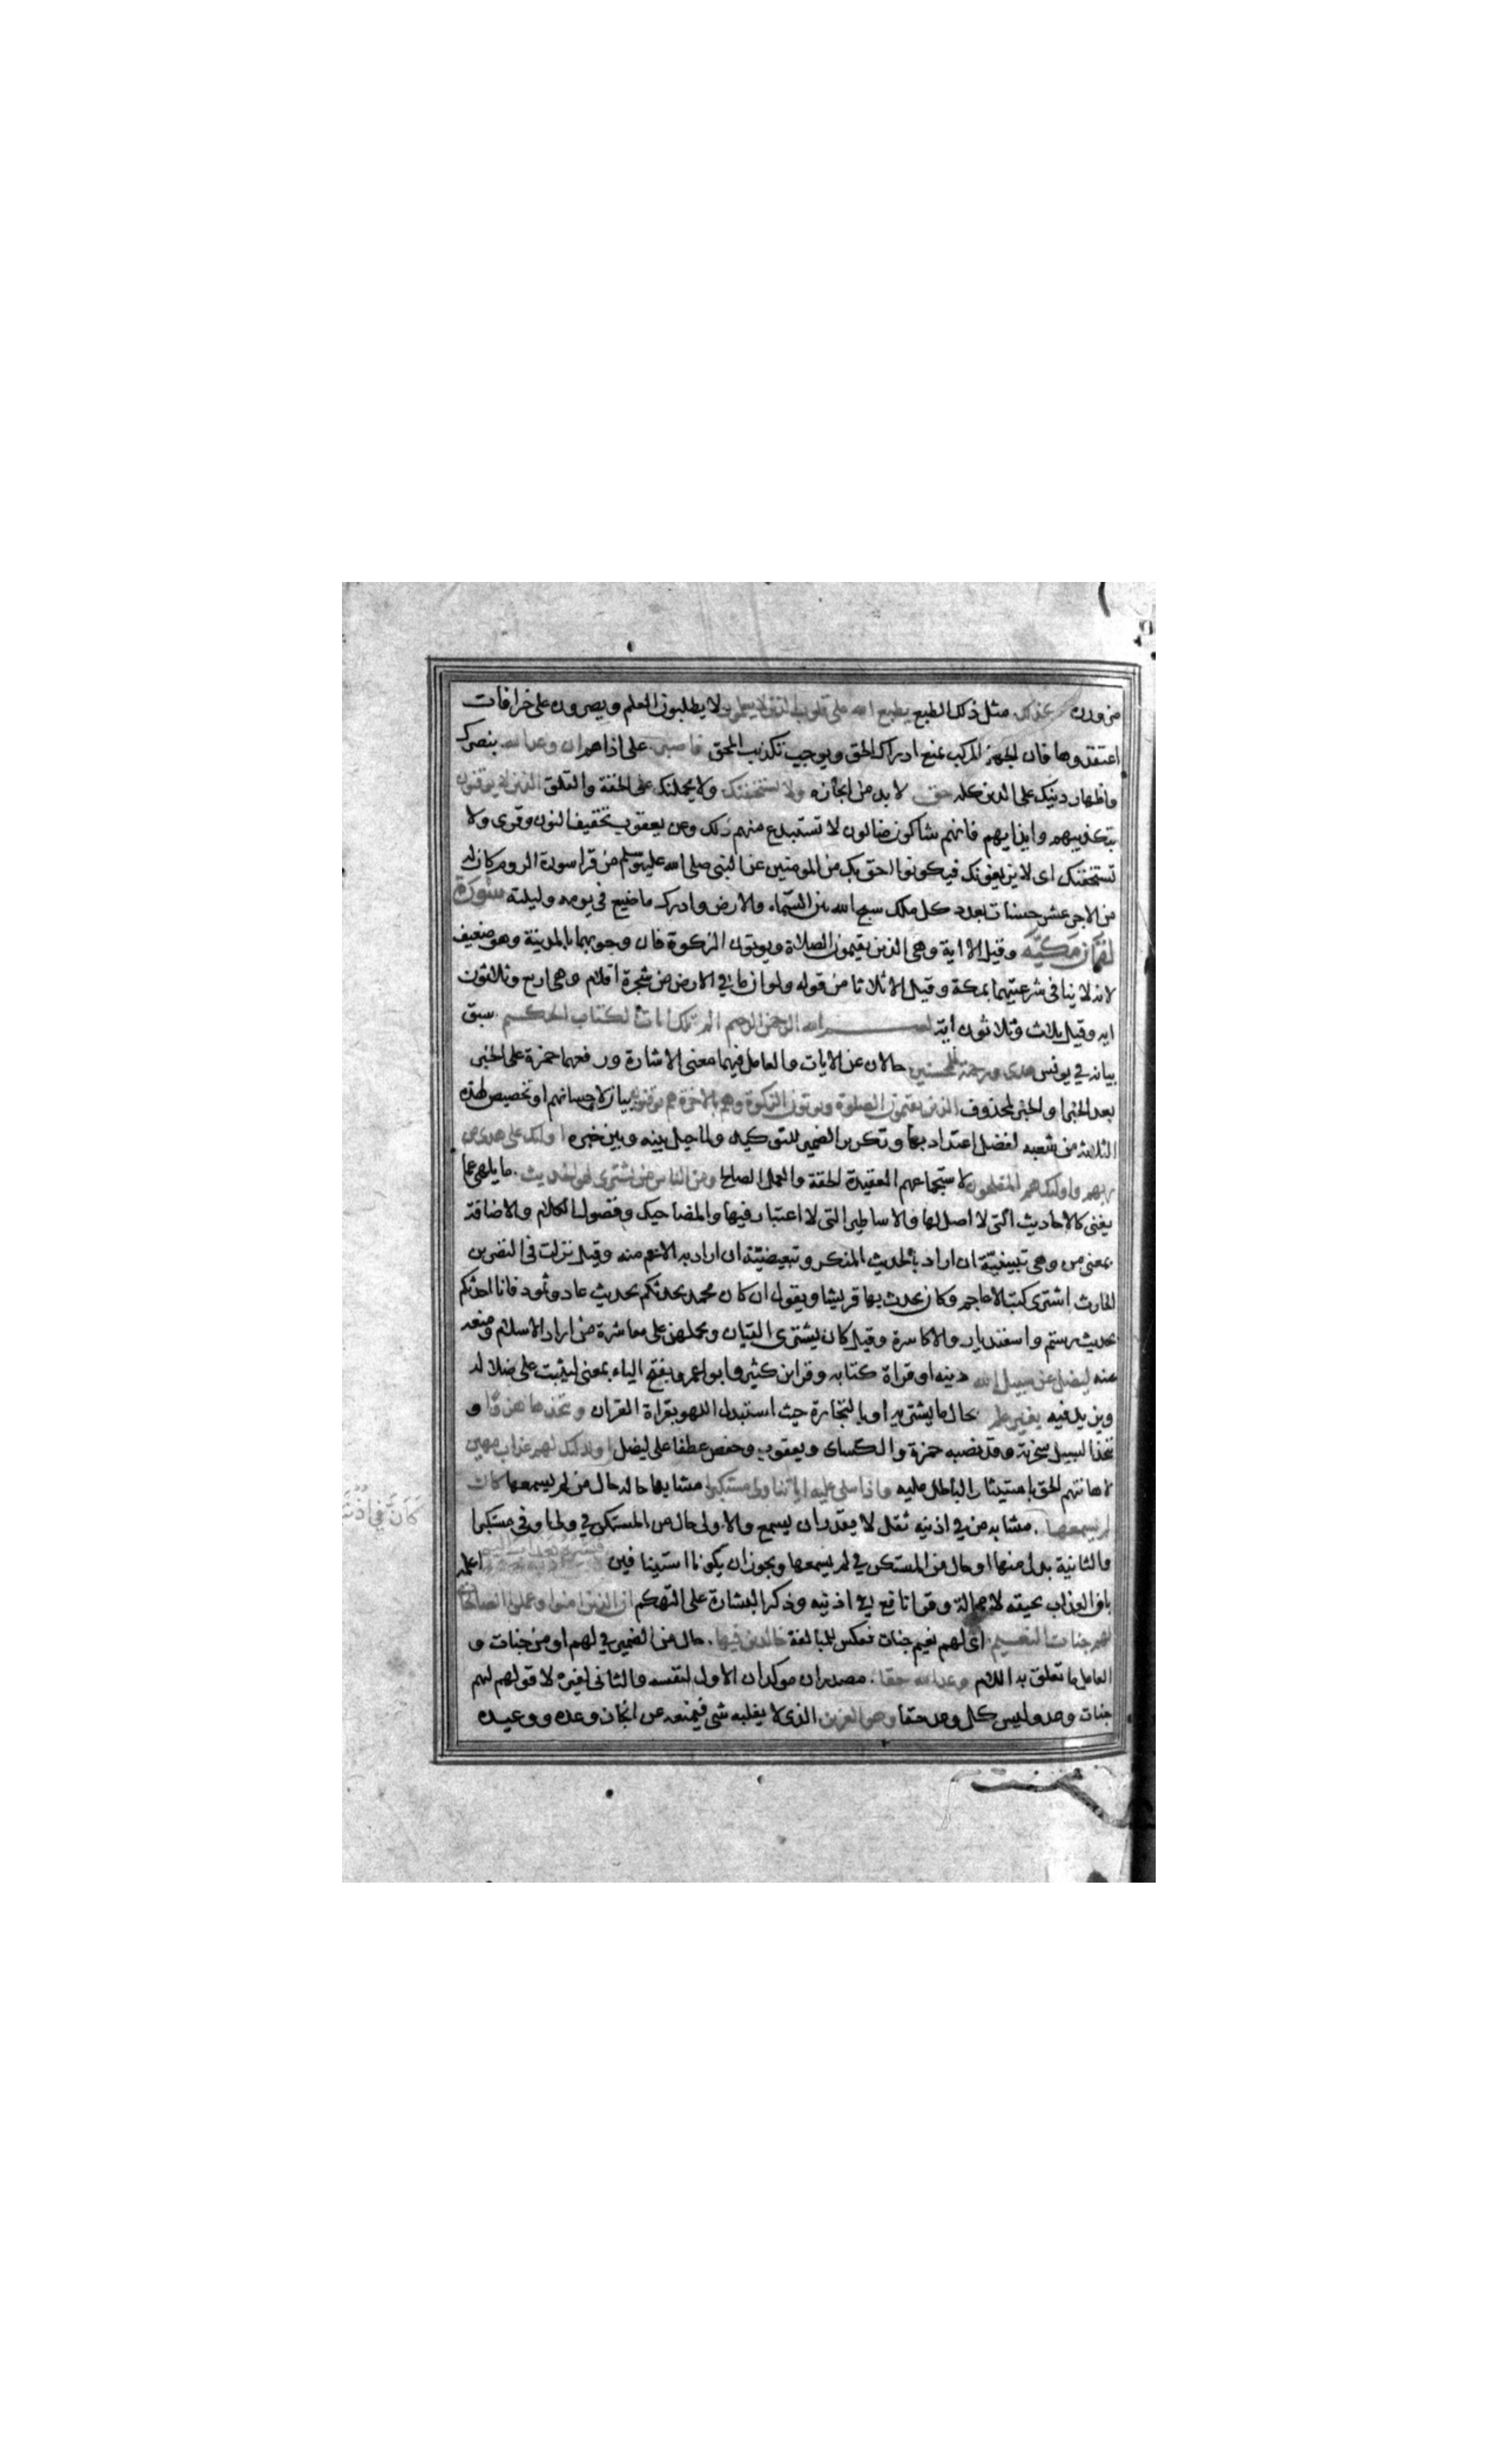 مزورون كذلك مثل ذلك الطبع يطبع الله على قلوب الذين لا يعلمون لا يطلبون العلم ويصرون على خرافات
اعتقدوها فان الجهل المركب يمنع ادراك الحق ويوجب تكذيب المحق فاصبر على اذاهم ان وعد الله بنصرك
واظهار دينك على الدين كله حق لا بد من انجازه ولا يستخفنك ولا يحملنك على الخفة والقلق الذين لا يوقنون
بتكذيبهم وايذايهم فانهم شاكون ضالون لا تستبدع منهم ذلك وعن يعقوب بتخفيف النون وقرى ولا
تستحقنك اى لا يزيغونك فيكونوا احق بك من المومنين عن النبى صلى الله عليه وسلم من قرا سورة الروم كان له
من الاجر عشر حسنات بعدد كل ملك سبح الله بين السماء والارض وادرك ما ضيع في يومه وليلته سورة
لقمان مكية وقيل الا اية وهى الذين يقيمون الصلاة ويوتون الزكوة فان وجوبهما بالمدينة وهو ضعيف
لانه لا ينافى شرعيتهما بمكة وقيل الا ثلاثا من قوله ولو ان ما في الارض من شجرة اقلام وهى اربع وثلاثون
ايه وقيل ثلاث وثلاثون اية بسم الله الرحمن الرحيم الم تلك ايات الكتاب الحكيم سبق
بيانه في يونس هدى ورحمة للمحسنين حالان عن الايات والعامل فيهما معنى الاشارة ورفعهما حمزة على الخبر
بعد الخبر او الخبر لمحذوف الذين يقيمون الصلوة ويوتون الزكوة وهم بالاخرة هم يوقنون بيان لاحسانهم او تخصيص لهذه
الثلاثة من شعبه لفضل اعتداد بها وتكرير الضمير للتوكيد ولما حيل بينه وبين خبره اولئك على هدى من
ربهم واولئك هم المفلحون لاستجماعهم العقيدة الحقة والعمل الصالح ومن الناس من يشترى لهو الحديث ما يلهى عما
يعنى كالاحاديث التى لا اصل لها والاساطير التى لا اعتبار فيها والمضاحيك وفضول الكلام والاضافة
بمعنى من وهى تبيينية ان اراد بالحديث المنكر وتبعيضية ان اراد به الاعم منه وقيل نزلت فى النضر بن
الحارث اشترى كتب الاعاجم وكان يحدث بها قريشا ويقول ان كان محمد يحدثكم بحديث عاد وثمود فانا احدثكم
بحديث رستم واسفنديار والاكاسرة وقيل كان يشترى القيان ويحملهن على معاشرة من اراد الاسلام ومنعه
عنه ليضل عن سبيل الله دينه او قراة كتابه وقرا ابن كثير وابو عمرو بفتح الياء بمعنى ليثبت على ضلاله
ويزيد فيه بغير علم بحال ما يشتريه او بالتجارة حيث استبدل اللهو بقراة القران ويتخذها هزوا و
يتخذ السبيل سخرية وقد نصبه حمزة والكساى ويعقوب وحفص عطفا على ليضل اولئك لهم عذاب مهين
لاهانتهم الحق باستيثار الباطل عليه واذا تتلى عليه اياتنا ولى مستكبرا مشابها حاله حال من لم يسمعها كان
لم يسمعها مشابه من في اذنيه ثقل لا يقدر ان يسمع والاولى حال من المستكن في ولى او فى مستكبرا
كان في اذنيه
والثانية بدل منها او حال من المستكن في لم يسمعها ويجوز ان يكونا استينافين فبشره بعذاب اليم اعلمه
بان العذاب يحيقه لا محالة وقرا نافع في اذنيه وذكر البشارة على التهكم ان الذين امنوا وعملوا الصالحات
لهم جنات النعيم اى لهم نعيم جنات فعكس للمبالغة خالدين فيها حال من الضمير في لهم او من جنات و
العامل ما تعلق به اللام وعد الله حقا مصدران موكدان الاول لنفسه والثانى لغيره لان قولهم لهم
جنات وعد وليس كل وعد حقا وهو العزيز الذى لا يغلبه شى فيمنعه عن انجاز وعده ووعيده